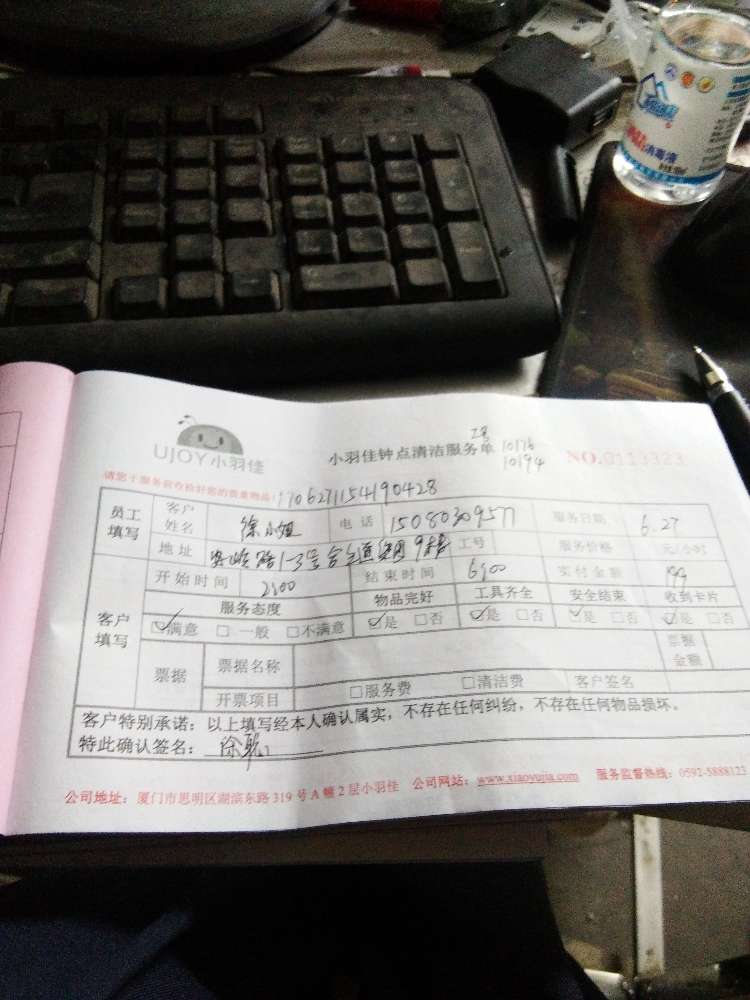 消毒液
UJOY小羽佳
小羽佳钟点清洁服务单
工号 10176
10194
NO.0113323
请您于服务前收拾好您的贵重物品!
1706271154190428
员工填写
客户姓名 徐小姐 电话 15080309577 服务日期 6.27
地址 工号 服务价格 元/小时
开始时间 2:00 结束时间 6:00 实付金额 199
客户填写
服务态度 物品完好 工具齐全 安全结束 收到卡片
☑满意 □一般 □不满意 ☑是 □否 ☑是 □否 ☑是 □否 ☑是 □否
票据 票据名称 票据金额
开票项目 □服务费 □清洁费 客户签名
客户特别承诺：以上填写经本人确认属实，不存在任何纠纷，不存在任何物品损坏。
特此确认签名：
公司地址：厦门市思明区湖滨东路319号A幢2层小羽佳 公司网站：www.xiaoyujia.com 服务监督热线：0592-5888123